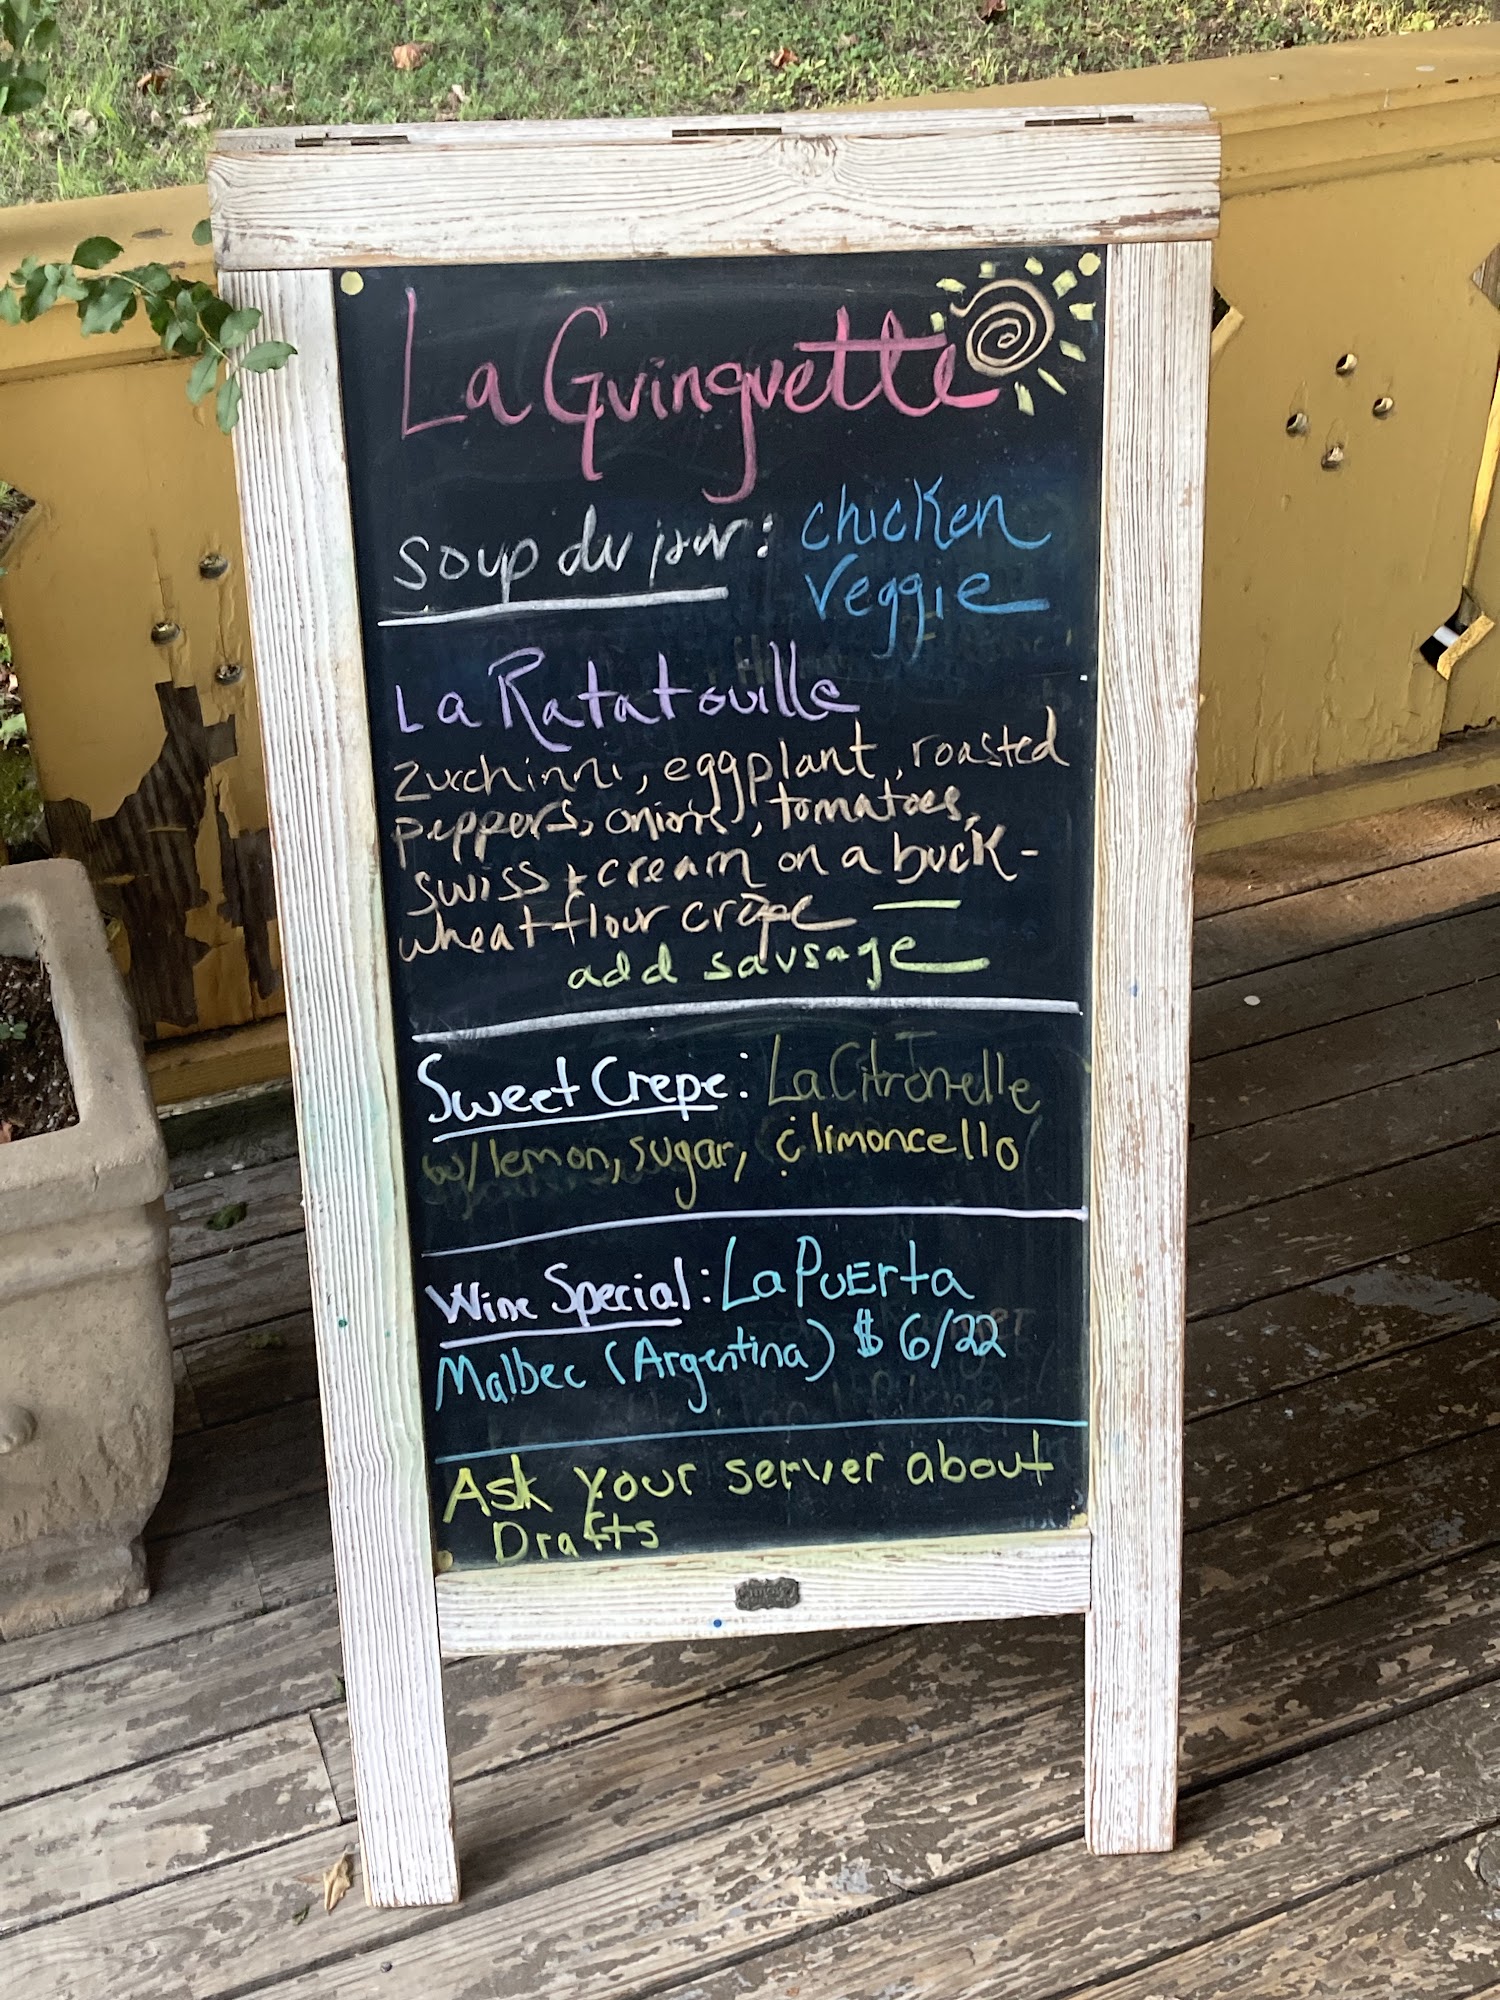 La Guinguette
soup du jour: chicken
veggie
La Ratatouille
zucchinni, eggplant, roasted
peppers, onions, tomatoes,
swiss + cream on a buck-
wheat flour crêpe
add sausage
Sweet Crepe: La Citronelle
w/ lemon, sugar, & limoncello
Wine Special: La PuErta
Malbec (Argentina) $6/22
Ask your server about
Drafts